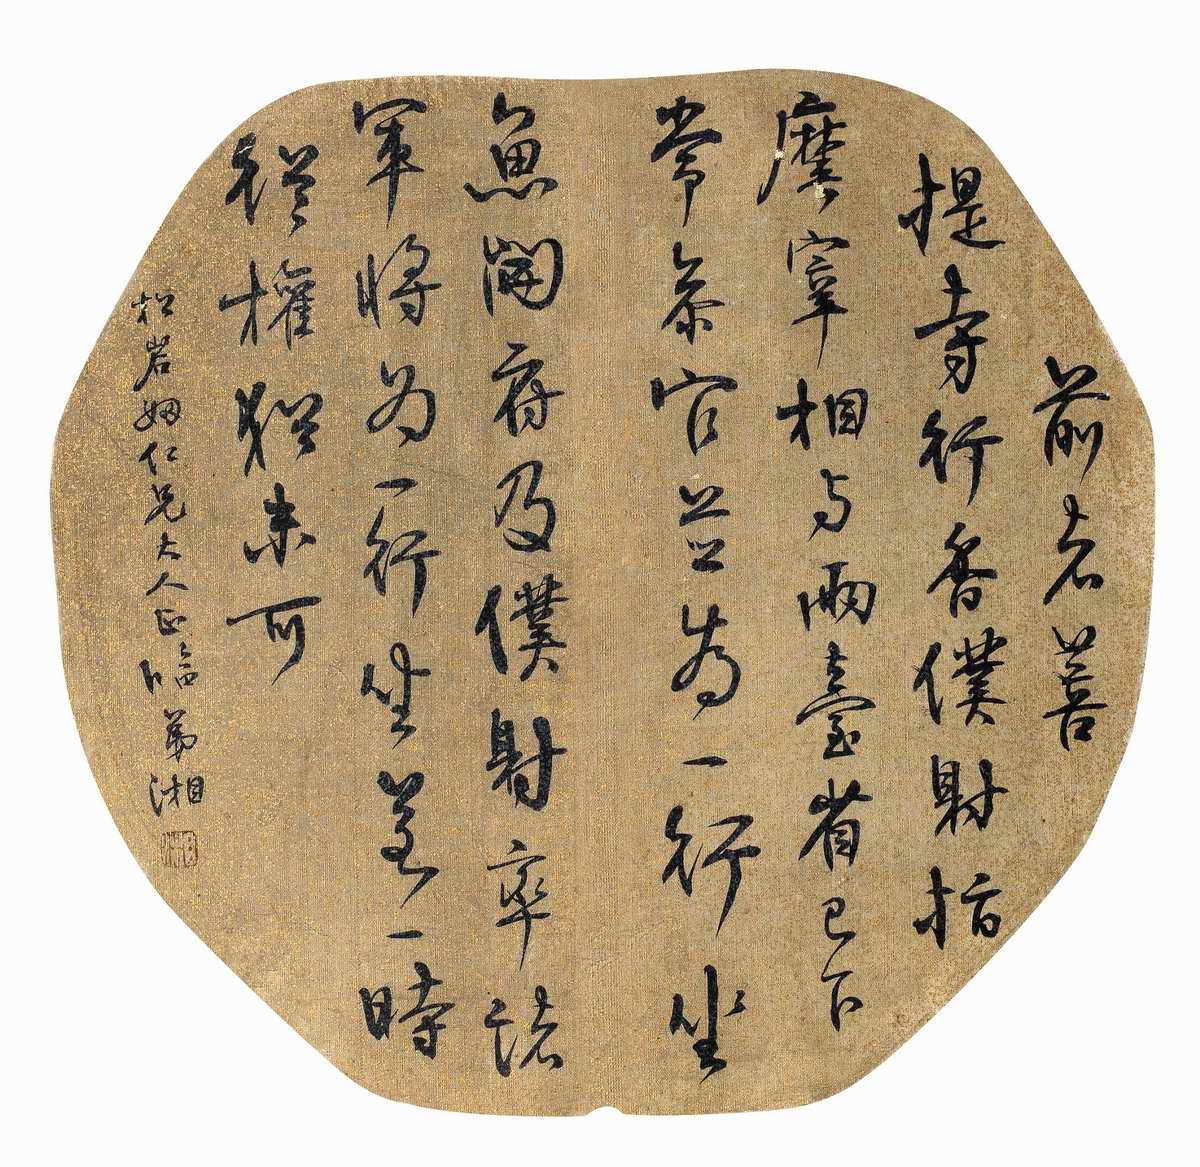 前者菩
提寺行香僕射指
麾宰相與兩臺省已下
常參官並為一行坐
魚開府及僕射率諸
軍將為一行坐若一時
從權猶未可
松岩姻仁兄大人正臨 弟湘